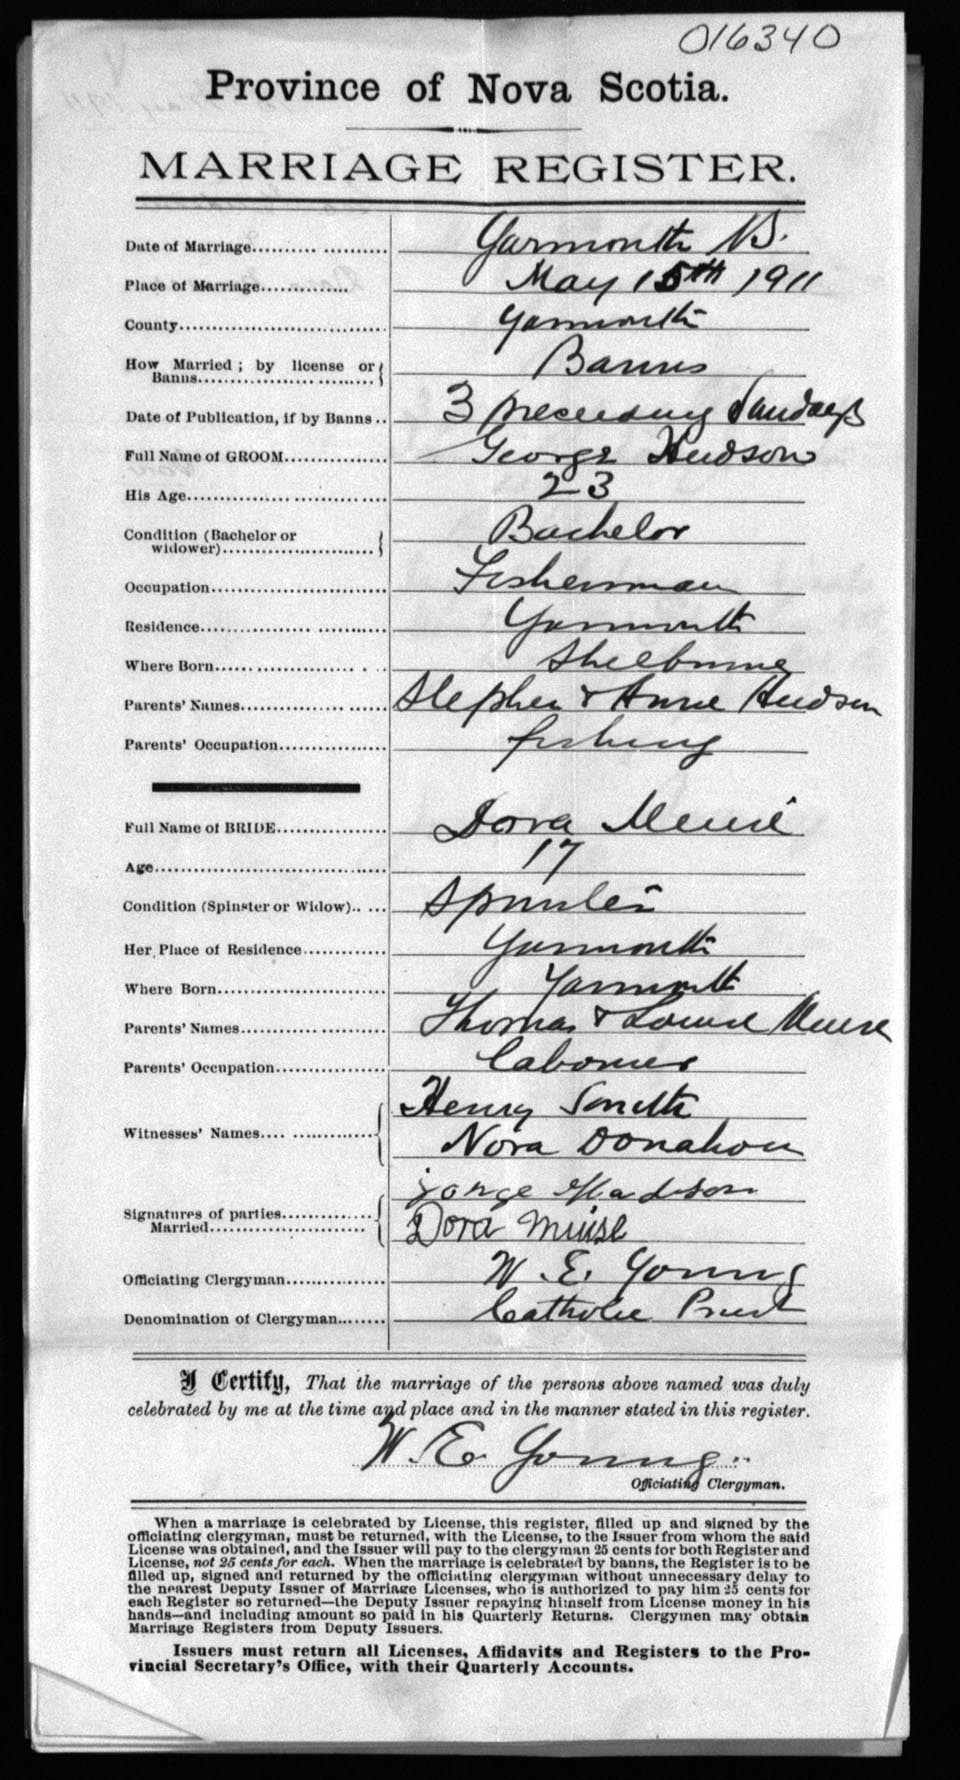 016340
Province of Nova Scotia.
MARRIAGE REGISTER.
Date of Marriage Yarmouth NS.
Place of Marriage May 15th 1911
County Yarmouth
How Married ; by license or
Banns Banns
Date of Publication, if by Banns 3 preceeding Sundays
Full Name of GROOM George Hudson
His Age 23
Condition (Bachelor or
widower) Bachelor
Occupation Fisherman
Residence Yarmouth
Where Born Shelburne
Parents' Names Stephen & Anne Hudson
Parents' Occupation fishing
Full Name of BRIDE Dora Meuse
Age 17
Condition (Spinster or Widow) Spinster
Her Place of Residence Yarmouth
Where Born Yarmouth
Parents' Names Thomas & Louise Meuse
Parents' Occupation Labourer
Witnesses' Names Henry Smith
Nora Donahou
Signatures of parties
Married
Dora Muise
Officiating Clergyman W. E. Young
Denomination of Clergyman Catholic Priest
I Certify, That the marriage of the persons above named was duly
celebrated by me at the time and place and in the manner stated in this register.
W. E. Young
Officiating Clergyman.
When a marriage is celebrated by License, this register, filled up and signed by the
officiating clergyman, must be returned, with the License, to the Issuer from whom the said
License was obtained, and the Issuer will pay to the clergyman 25 cents for both Register and
License, not 25 cents for each. When the marriage is celebrated by banns, the Register is to be
filled up, signed and returned by the officiating clergyman without unnecessary delay to
the nearest Deputy Issuer of Marriage Licenses, who is authorized to pay him 25 cents for
each Register so returned—the Deputy Issuer repaying himself from License money in his
hands—and including amount so paid in his Quarterly Returns. Clergymen may obtain
Marriage Registers from Deputy Issuers.
Issuers must return all Licenses, Affidavits and Registers to the Pro-
vincial Secretary's Office, with their Quarterly Accounts.